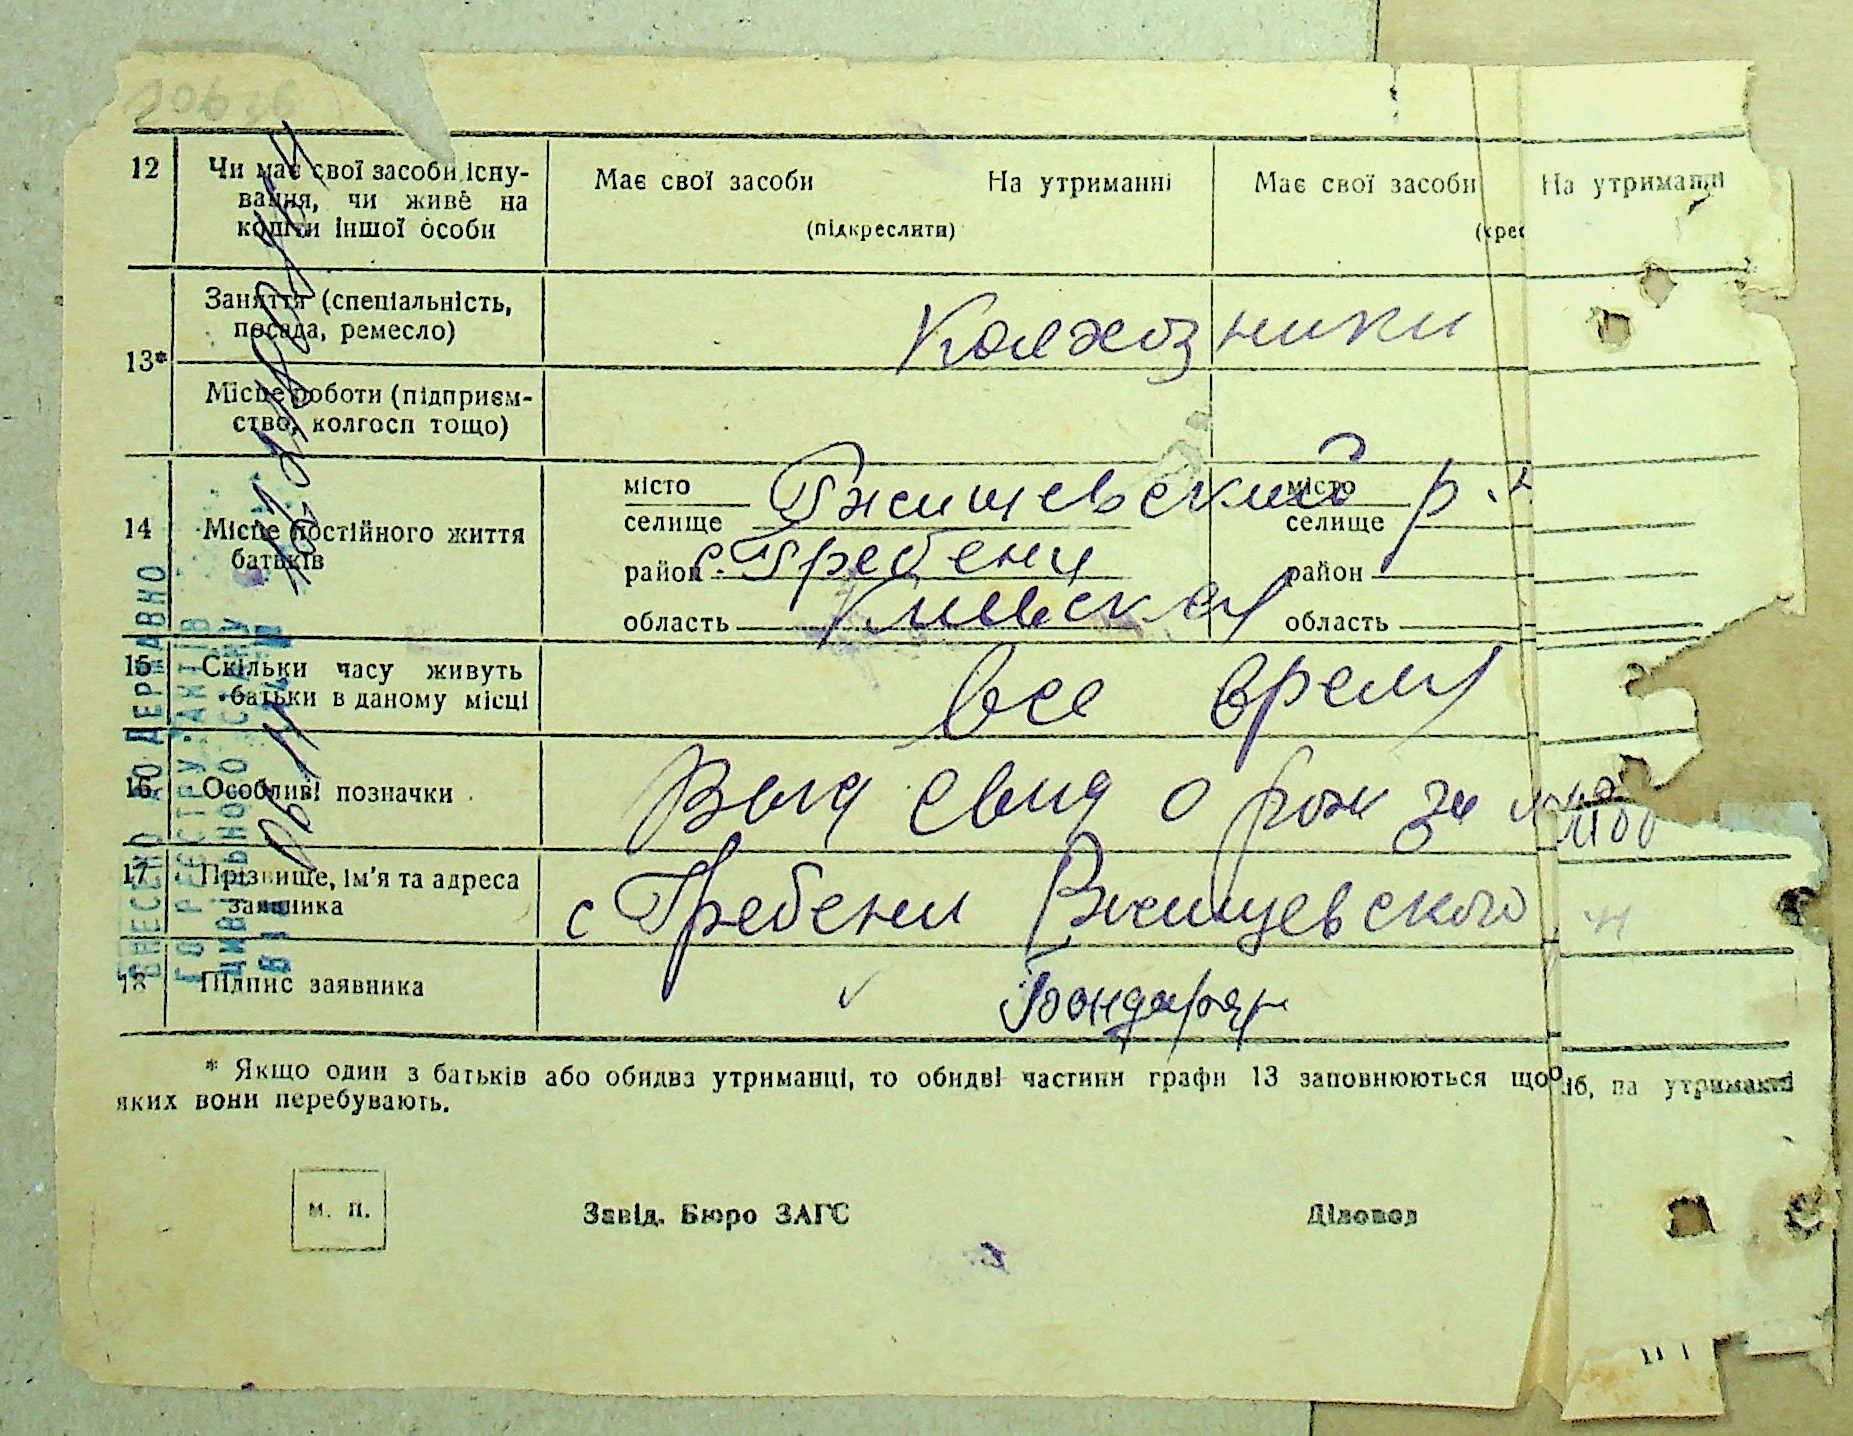 12
Чи має свої засоби існу-
вання, чи живе на
кошти іншої особи
Має свої засоби На утриманні
(підкреслити)
Має свої засоби На утриманні
13*
Заняття (спеціальність,
посада, ремесло)
Колхозники
Місце роботи (підприєм-
ство, колгосп тощо)
14
Місце постійного життя
батьків
місто
селище
район
область
Ржищевский р.
с. Гребени
Киевская
місто
селище
район
область
15
Скільки часу живуть
батьки в даному місці
все время
16
Особливі позначки
Выд свид о рож за
17
Прізвище, ім'я та адреса
заявника
с Гребени Ржищевского
18
Підпис заявника
Бондарь
ВНЕСЕНО ДО ДЕРЖАВНО
ГО РЕЄСТРУ АКТІВ
ЦИВІЛЬНОГО СТАНУ
* Якщо один з батьків або обидва утриманці, то обидві частини графи 13 заповнюються щодо іб, на утриманні
яких вони перебувають.
м. п.
Завід. Бюро ЗАГС
Діловод